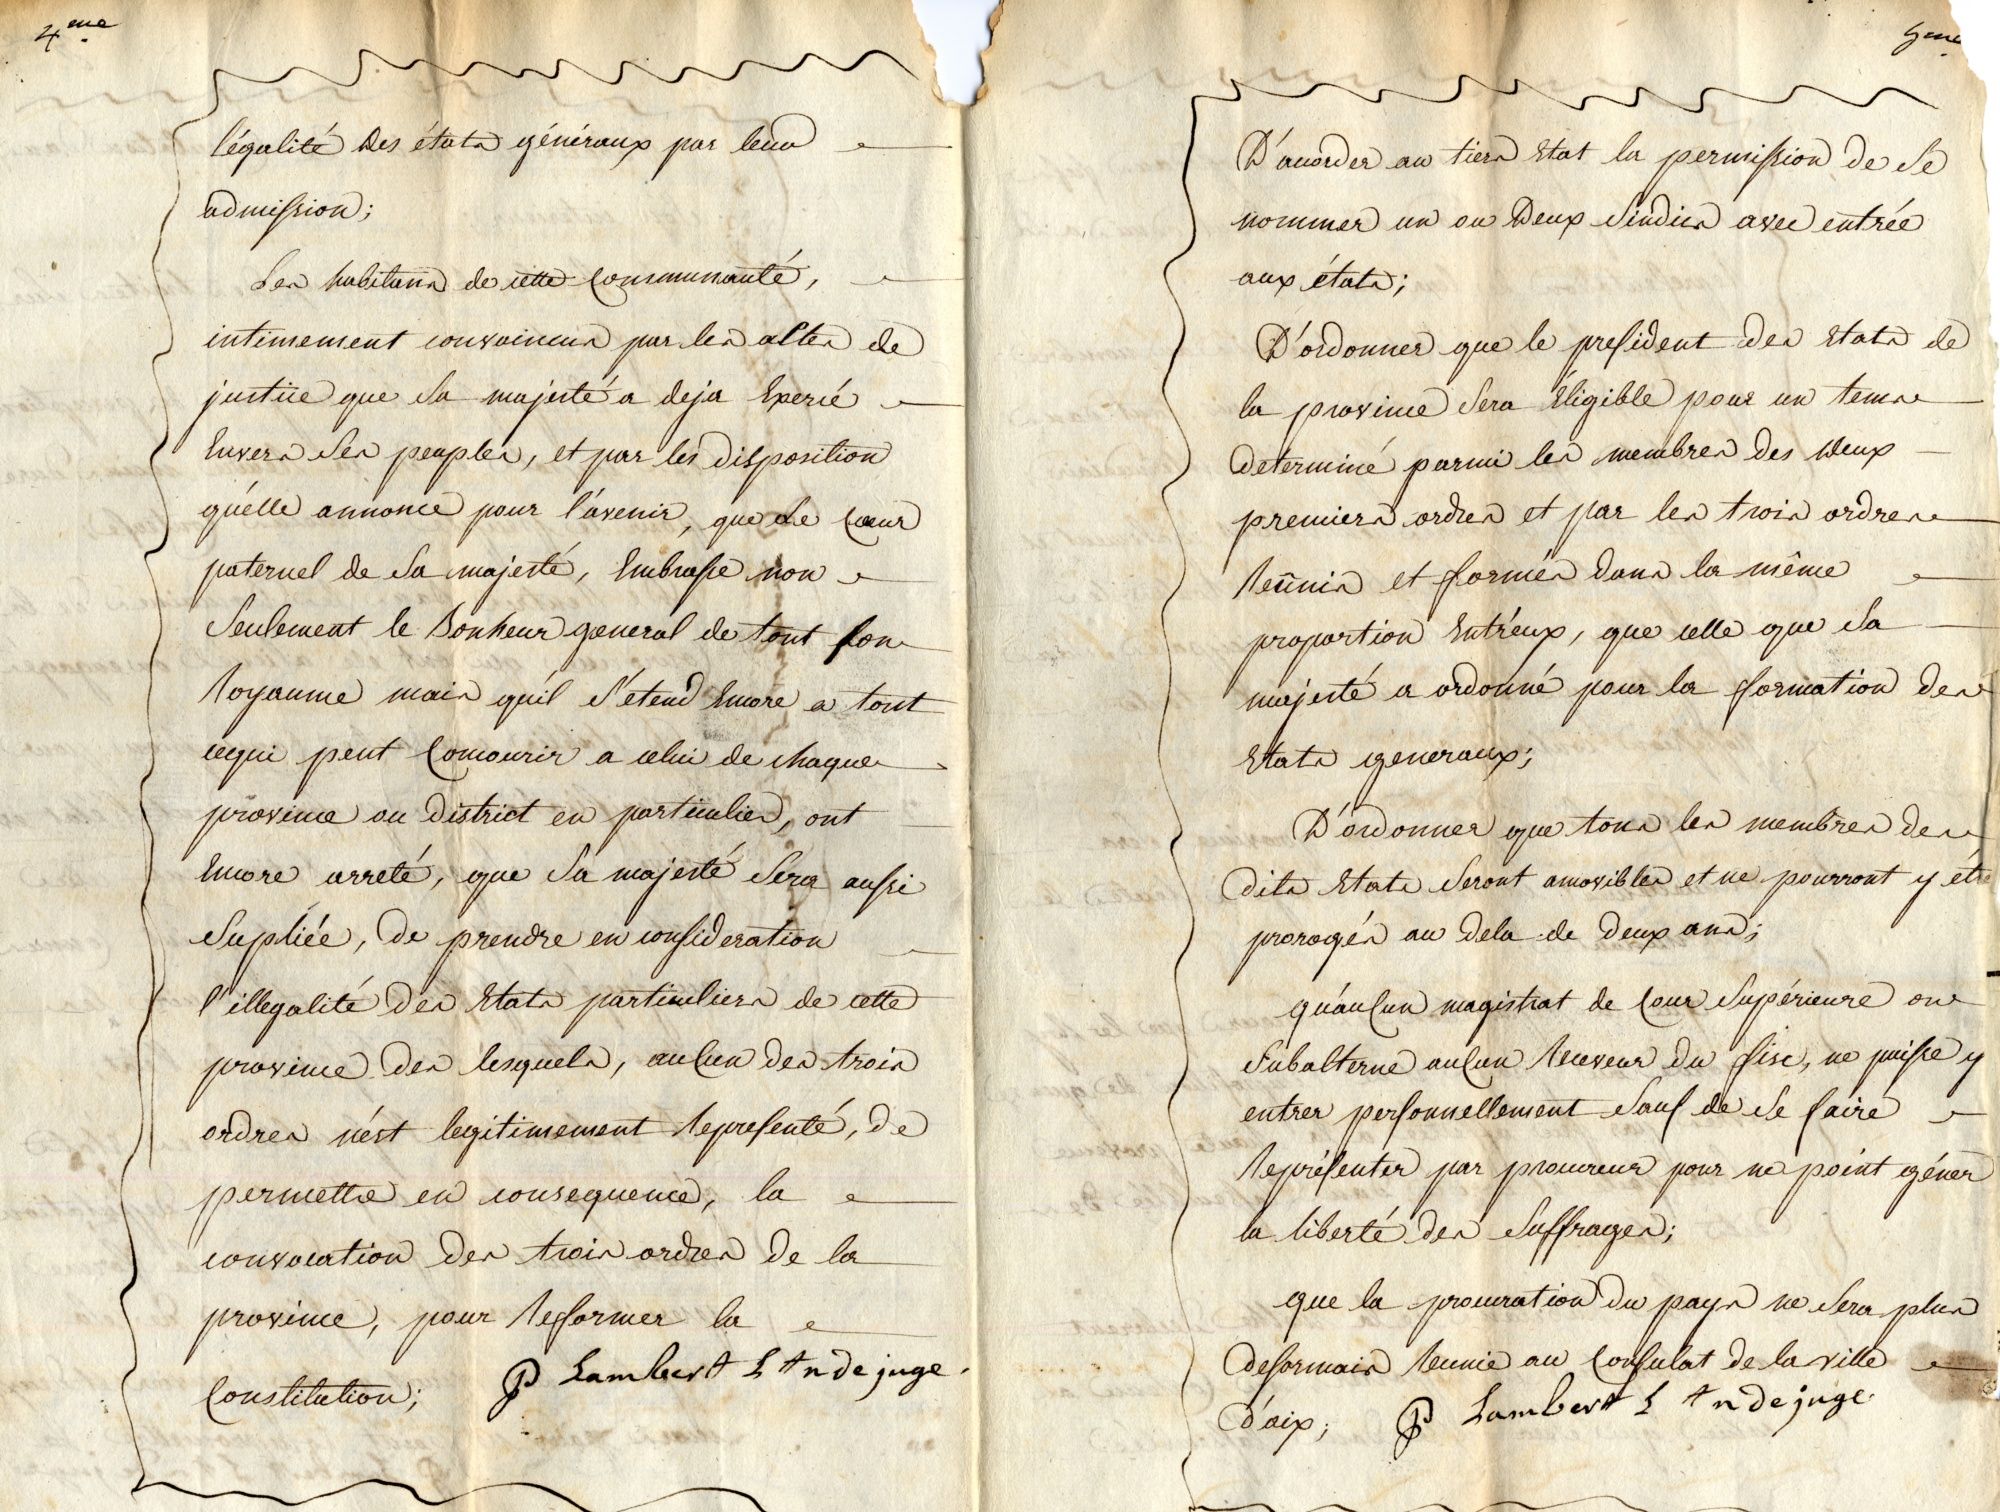 4me
légalité des états généraux par leur
admission;
Les habitans de cette Communauté,
intimement convaincus par les altes de
justice que Sa majesté a deja Exercé
Envers Ses peuples, et par les disposition
qu'élle annonce pour l'avenir, que Le Cœur
paternel de Sa majesté, Embrasse non
Seulement le Bonheur general de tout son
Royaume mais qu'il S'étend Encore a tout
cequi peut Concourir a celui de chaque
province ou District en particulier, ont
Encore arreté, que Sa majesté Sera aussi
Supliée, de prendre en consideration
l'illegalité des Etats particuliers de cette
province des lesquels, auCun des trois
ordres n'ést legitimement Representé, de
permettre en consequence, la
convocation des trois ordres de la
province, pour Reformer la
Constitution; P Lambert Ltn de juge.
5me
D'acorder au tiers Etat la permission de Se
nommer un ou Deux Sindics avec entrée
aux états;
D'ordonner que le president des Etats de
la province Sera Éligible pour un tems
Determiné parmi les membres des Deux
premiers ordres et par les trois ordres
Reünis et formés dans la même
proportion Entr'eux, que celle que Sa
majesté a ordonné pour la formation des
Etats generaux;
D'ordonner que tous les membres des
Dits Etats Seront amovibles et ne pourront y étre
prorogés au dela de Deux ans;
qu'auCun magistrat de Cour Supérieure ou
Subalterne auCun Receveur du fisc, ne puisse y
entrer personnellement Sauf de Se faire
Représenter par procureur pour ne point géner
la liberté des Suffrages;
que la procuration du pays ne Sera plus
Desormais Reunie au Consulat de la ville
D'aix; P Lambert Ltn de juge.